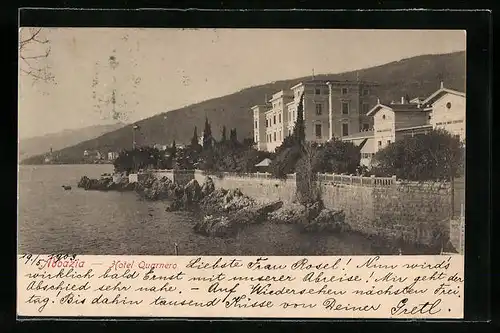 19/5 1903
Abbazia Hotel Quarnero Liebste Frau Rosel! Nun wird's
wirklich bald Ernst mit unserer Abreise! Mir geht der
Abschied sehr nahe. - Auf Wiedersehen nächsten Frei-
tag. Bis dahin tausend Küsse von Deiner Gretl.